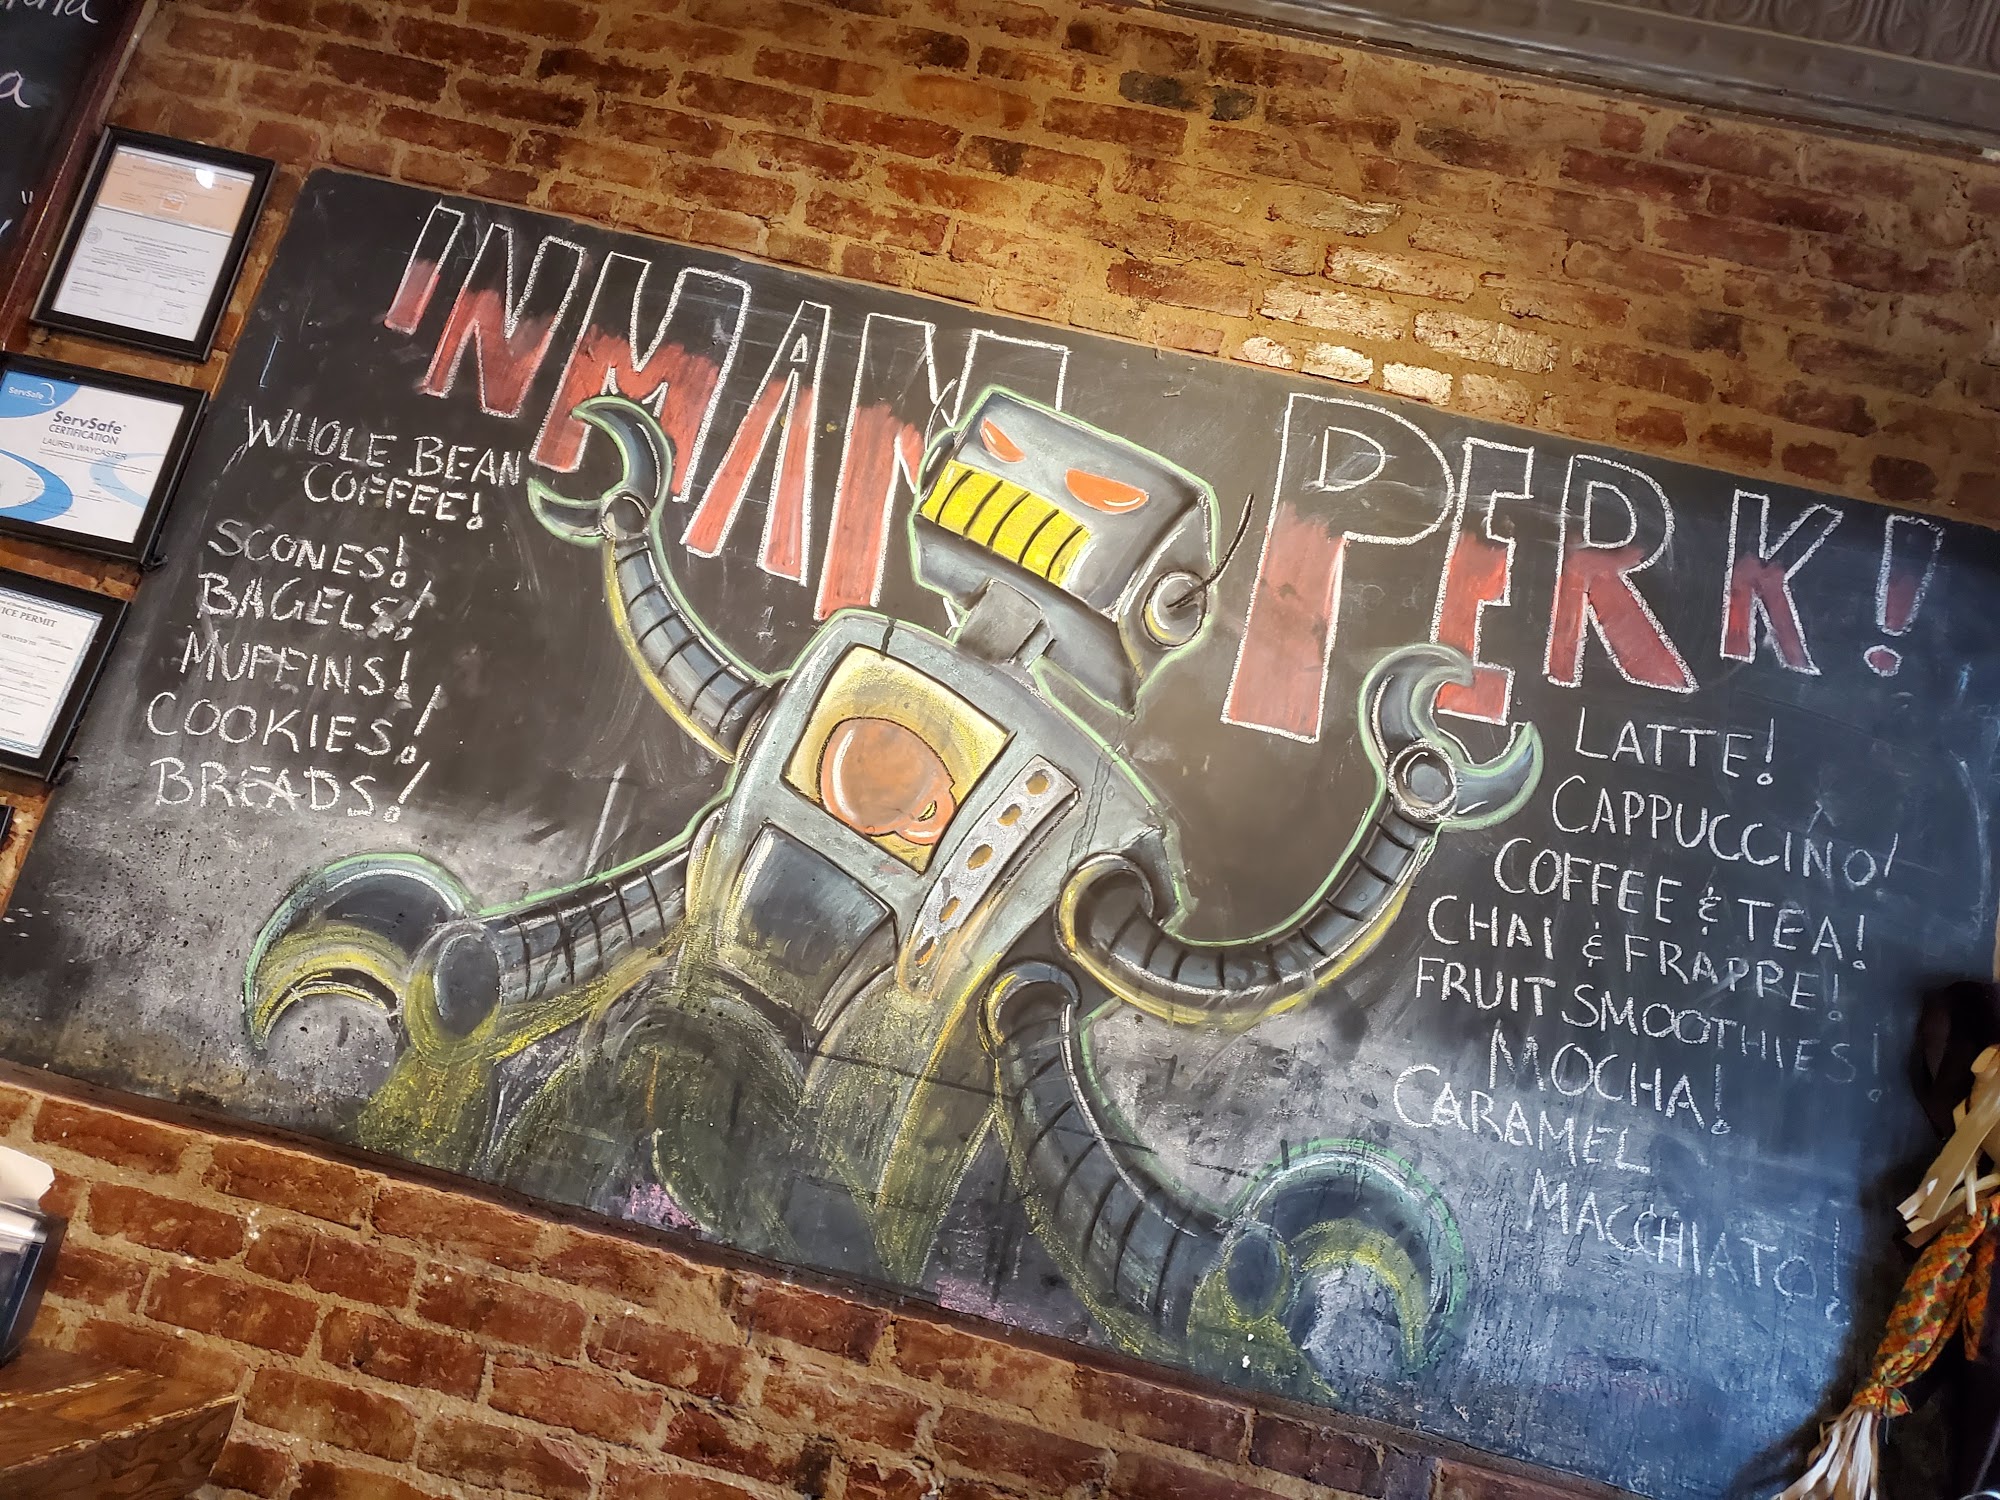 INMAN PERK!
WHOLE BEAN
COFFEE!
SCONES!
BAGELS!
MUFFINS!
COOKIES!
BREADS!
LATTE!
CAPPUCCINO!
COFFEE & TEA!
CHAI & FRAPPE!
FRUIT SMOOTHIES!
MOCHA!
CARAMEL
MACCHIATO!
ServSafe
ServSafe
CERTIFICATION
LAUREN WAYCASTER
PERMIT
a